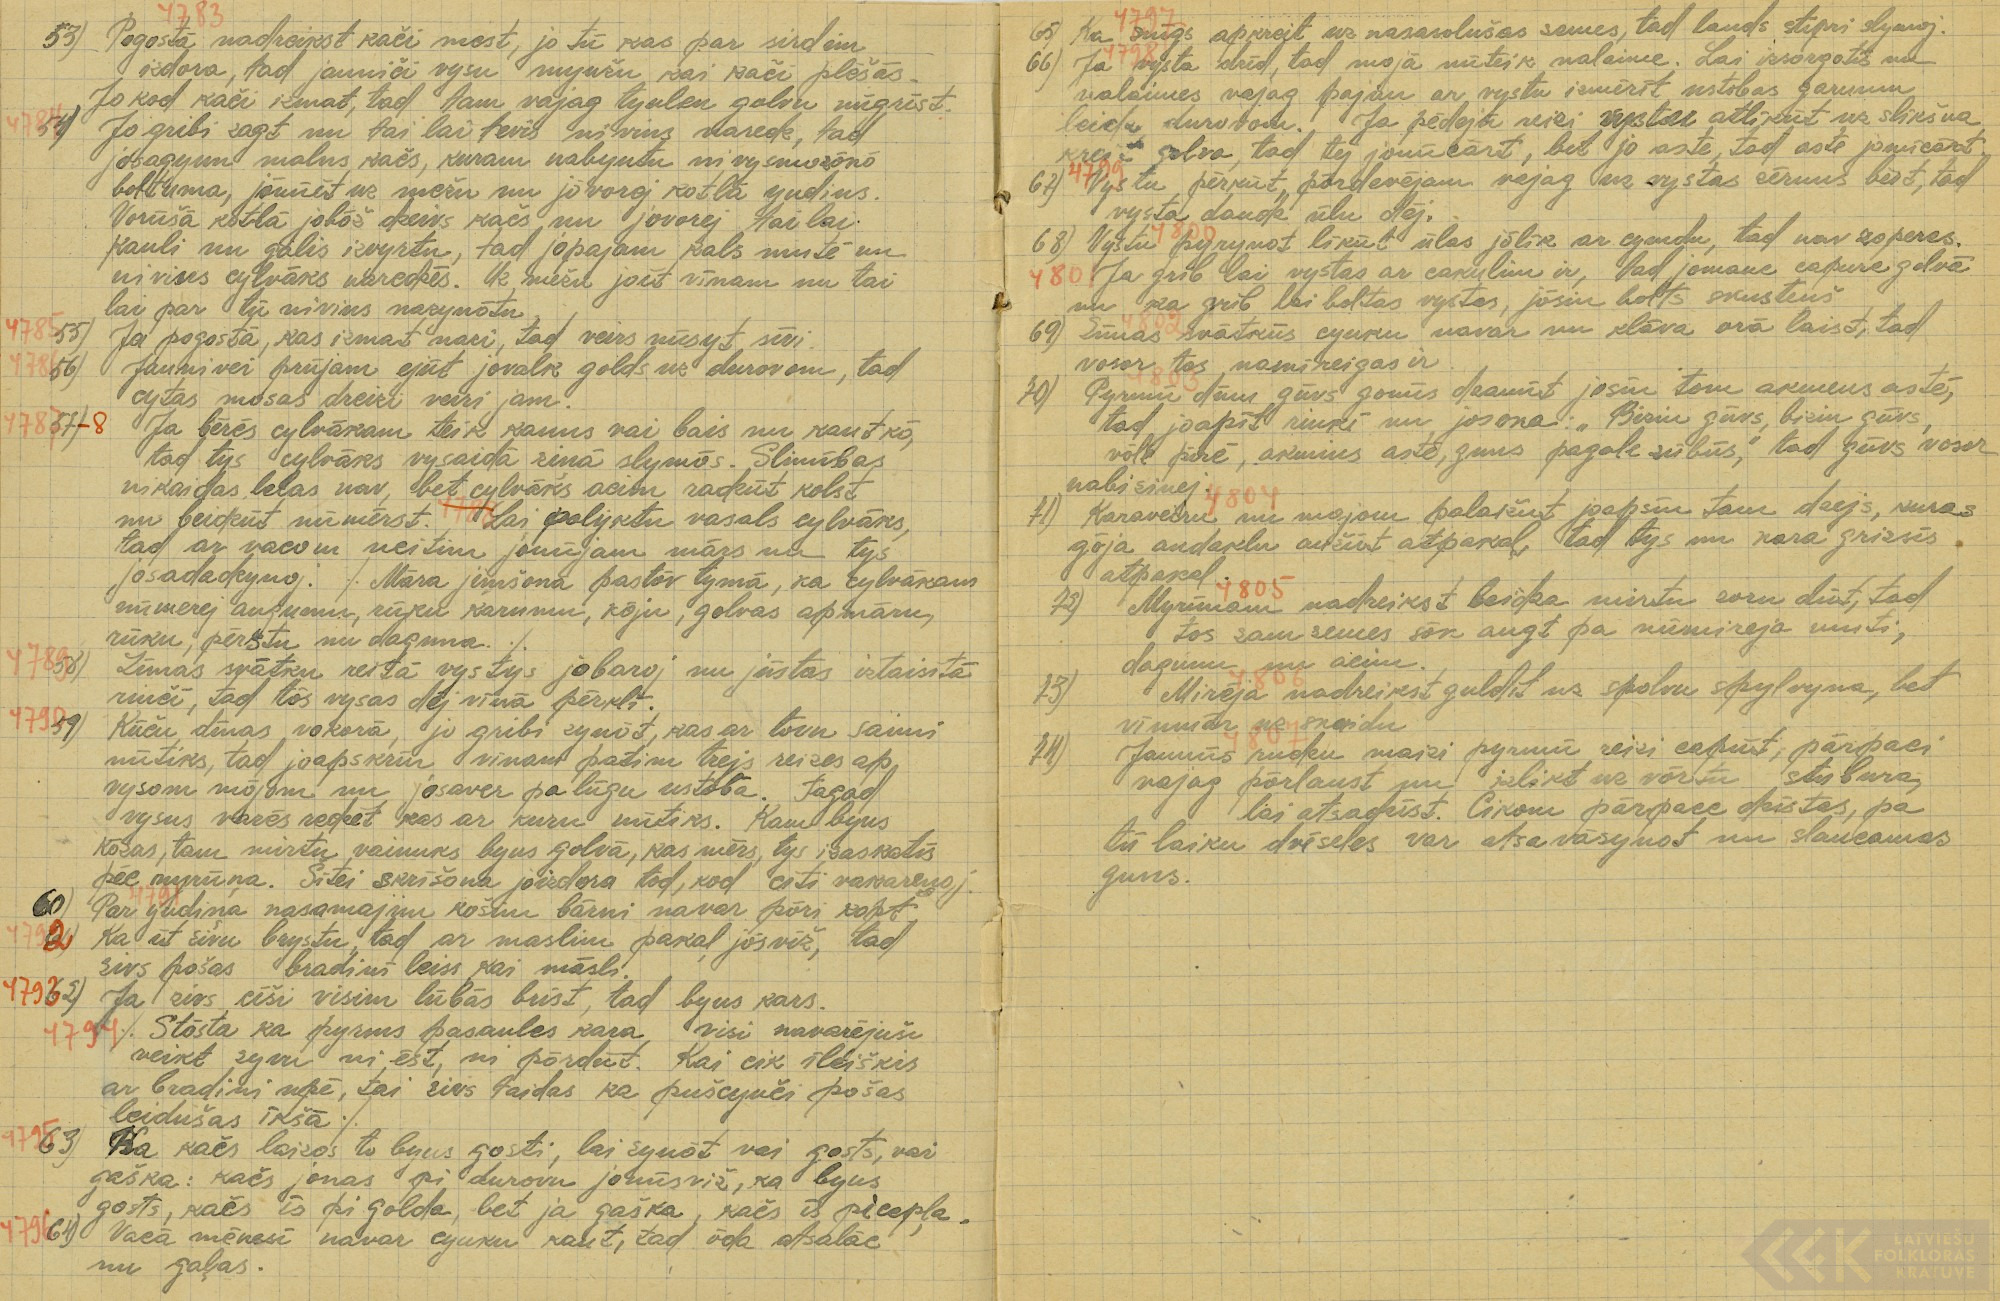 4783
53) Pogostā nadreikst kači mest, jo tū kas par sirdein
izdora, tad jauniči vysu myužu kai kači plēšās.
Jo kod kači izmat, tad tam vajag tyulen golvu nūgrīst.
4784
54) Jo gribi zagt nu tai lai tevis nivins naredz, tad
jōsagyun malns kačs, kuram nabyutu nivysmozōkō
boltuma, jōnūīt uz mežu nu jōvorej kotlā yudins.
Vorūšā kotlā jobōž dzeivs kačs nu jovorej tai lai
kauli nu gōlis izvyrtu, tad jōpajam kals mutē nu
nivins cylvāks naredzēs. Uz mežu joīt vīnam nu tai
lai par tū nivins nazynōtu.
4785 55) Ja pogostā, kas izmat nazi, tad veirs nūsyt sīvi.
4786 56) Jaunivei prūjam ejūt jovalk golds uz durovom, tad
cytas mosas dreizi veiri jam.
4787 57)-8 Ja bērēs cylvākam teik kauns vai bais nu kaut kō,
tad tys cylvāks vysaidā ziņā slymōs. Slimības
nikaidas lelas nav, bet cylvāks acim radzūt kolst
nu beidzūt nūmērst. Lai paliktu vasals cylvāks,
tad ar vacom neitim jonūjam mārs nu tys
josadadzynoj. /. Māra jimšona pastōv tymā, ka cylvākam
nūmerej augumu, rūku karumu, kōju, golvas apmāru,
rūku, pērstu nu daguna. ./.
4789 58) Zīmas svātku reitā vystys jobaroj nu jūstas iztaisitā
rinčī, tad tōs vysas dēj vīnā pērklī.
4790 59) Kūču dīnas vokorā, jo gribi zynōt, kas ar tovu saimi
nūtiks, tad joapskrīn vīnam pašim trejs reizes ap
vysom mōjom nu jōsaver pa lūgu ustobā. Tagad
vysus varēs redzēt kas ar kuru nūtiks. Kam byus
kōzas, tam mirtu vainuks byus golvā, kas mērs, tys izaskatīs
pēc myrūņa. Šitei skrīšona joizdora tod, kod citi vakareņoj.
60) 4791 Par yudiņa nasamajim košim bārni navar pōri kopt.
4792 61) Ka īt zivu brystu, tad ar maslim pakaļ jōsviž, tad
zivs pošas bradiņī leiss kai māsli.
4793 62) Ja zivs cīši visim lūbās brīst, tad byus kars.
4794 ./. Stōsta ka pyrms pasaules kara visi navarējuši
veikt zyvu ni ēst, ni pōrdūt. Kai cik īleiškis
ar bradiņi upē, tai zivs taidas ka puščeņči pošas
leidušas īkšā ./.
4795 63) Ka kačs laizos to byus gosti, lai zynōt vai gosts, vai
gaška: kačs jonas pi durovu jonūsviž, ka byus
gosts, kačs īs pi golda, bet ja gaška, kačs īs pi cepļa.
4796 64) Vacā mēnesī navar cyuku kaut, tad ōda atsalāc
nu gaļas.
4797
65) Ka snīgs apkreit uz nasasolušas zemes, tad lauds stipri slymoj.
4798
66) Ja vysta dzīd, tad mojā nūteik nalaime. Lai izsorgotīs nu
nalaimes vajag pajimt ar vystu izmērīt ustobas garumu
leidz durovom. Ja pēdejū reizi vystai atlikūt uz slikšņa
kreit golva, tad tei jonūcārt, bet jo aste, tad aste jonūcārt.
67) 4799 Vystu pērkūt, pōrdevējam vajag uz vystas zērnus bērt, tad
vysta daudz ūlu dēj.
4800
68) Vystu pyrynot līkūt ūlas jōlīk ar cymdu, tad nav zoperes.
4801 Ja grib lai vystas ar cakulim ir, tad jomauc capure golvā
nu ka grib lai boltas vystas, jōsin bolts skusteņš
4802
69) Zīmas svātkūs cyuku navar nu klāva orā laist, tad
vosor tos namīreigas ir
4803
70) Pyrmū dīnu gūvs gonūs dzanūt josīn tom akmens astē,
tad joapīt rinkī nu josoka: „Bizin gūvs, bizin gūvs,
vōlē pīrē, akmins astē, guns pagale zūbūs," tad gūvs vosor
nabizinej.
4804
71) Karaveiru nu mojom palaižūt joapsīn tam dzejs, kuras
gōja audaklu aužūt atpakaļ, tad tys nu kara grizsīs
atpakaļ.
4805
72) Myrūnam nadreikst leidza mirtu zoru dūt, tad
tos zam zemes sōk augt pa nūmireja muti,
dagunu nu acim.
4806
73) Mirēja nadreikst guldīt uz spolvu spylvyna, bet
vīnmār uz skaidu
4807
74) Jaunūs rudzu maizi pyrmū reizi capūt, pārpaci
vajag pōrlaust nu izlikt uz vōrtu stubura,
lai atsadzīst. Cikom pārpace dzīstas, pa
tū laiku dvēseles var atsavāsynot nu slaucamas
guns.
LATVIEŠU
FOLKLORAS
KRĀTUVE